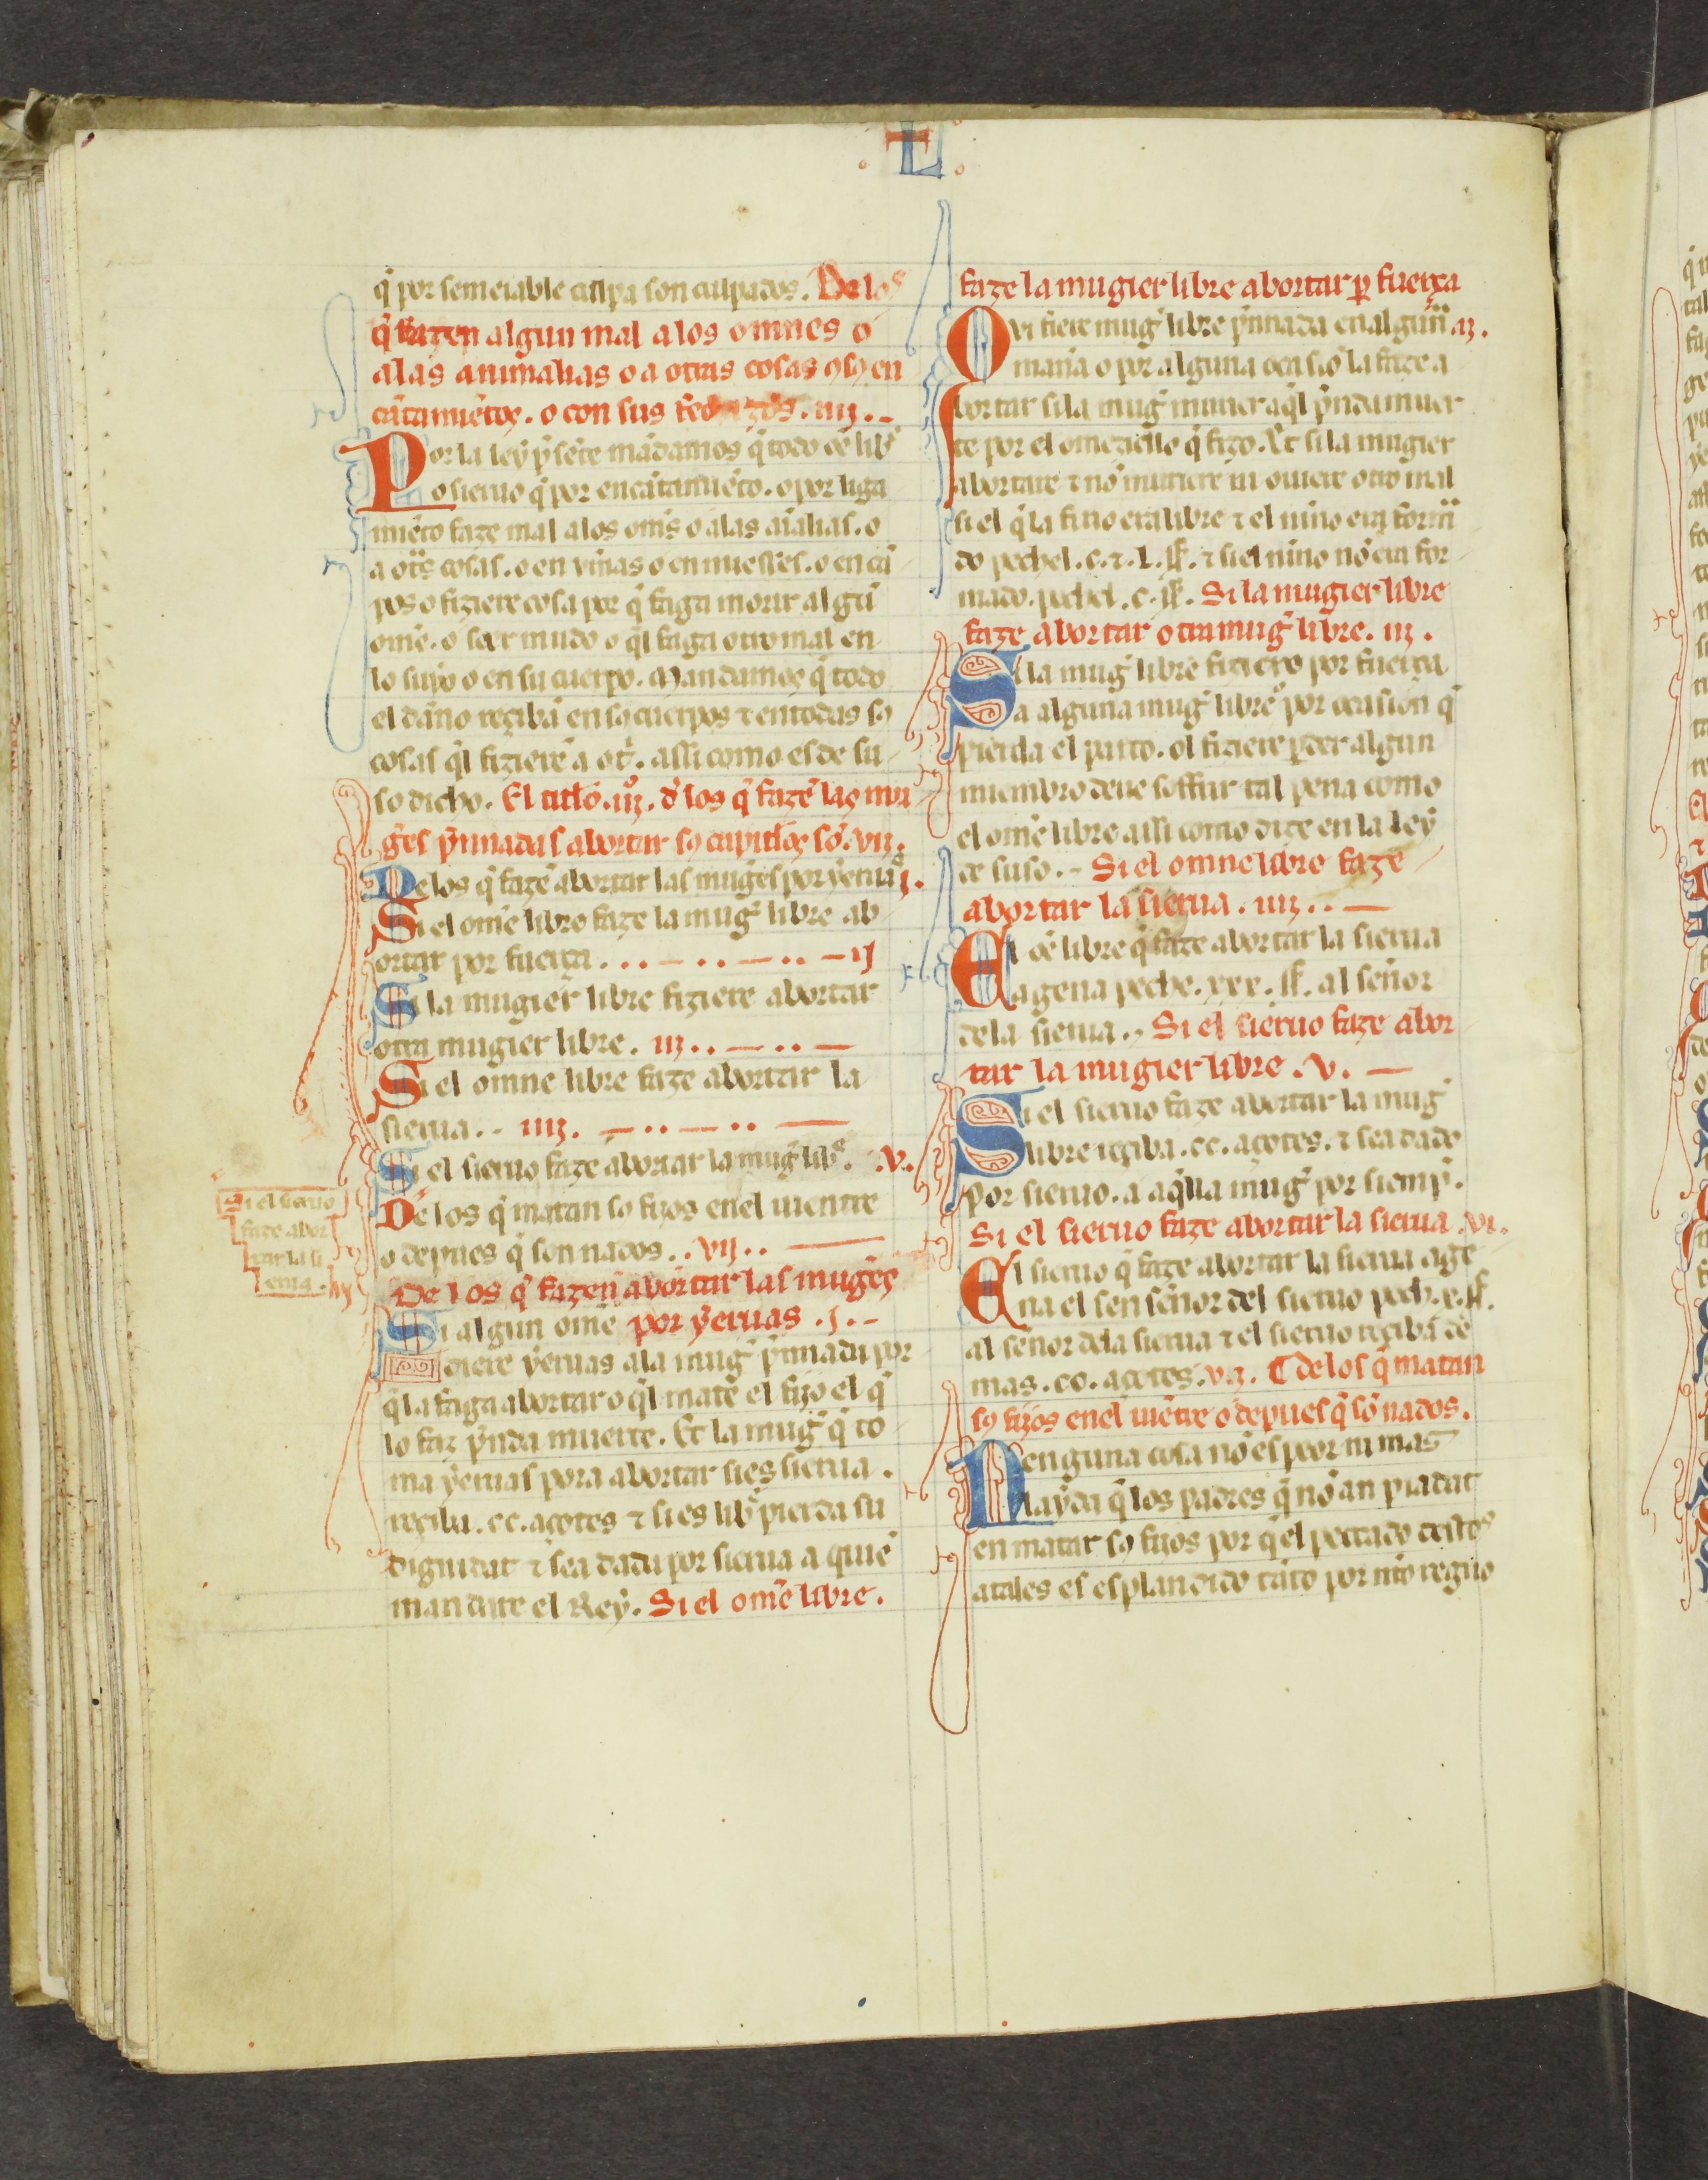 .L.
q̃ por semeiable culpa son culpados. De los
q̃ fazen algun mal a los omnes o
a las animalias o a otras cosas con sus en
cãtamiẽtos. o con sus .iiij.
Por la ley p̃sẽte mãdamos q̃ todo oẽ libr̃
o sieruo q̃ por encãtamiẽto. o por liga
miẽto faze mal a los om̃s o a las aĩalias. o
a otr̃s cosas. o en viñas o en miesses. o en cã
pos o fiziere cosa por q̃ faga morir algũ
omẽ. o seer mudo o q̃l faga otro mal en
lo suyo o en su cuerpo. Mandamos q̃ todo
el dãno reçibã en sos cuerpos ⁊ en todas sos
cosas q̃l fizierẽ a ot̃. assi como es de su
so dicho. El titl̃o .iij. d̃ los q̃ fazẽ las mu
gr̃es p̃nnadas abortar sos capitl̃os sõ .vij.
De los q̃ fazẽ abortar las mugr̃es por yeruas .j.
Si el omẽ libre faze la mug̃ libre ab
ortar por fuerça . . . — . . — . . — ij
Si la mugier libre fiziere abortar
otra mugier libre. iij . . — . . —
Si el omne libre faze abortar la
sierua . . iiij. — . . — . . —
Si el sieruo faze abortar la mug̃ libr̃e. .v.
Si el sieruo
faze abor
tar la si
erua. .vj
De los q̃ matan sos fijos en el uientre
o depues q̃ son nados. . vij . . —
De los q̃ fazen abortar las mugr̃es
Si algun omẽ por yeruas .j. –
diere yeruas a la mug̃ p̃nnada por
q̃ la faga abortar o q̃l mate el fijo el q̃
lo faz p̃nda muerte. Et la mug̃ q̃ to
ma yeruas pora abortar si es sierua.
reçiba .cc. açotes ⁊ si es libr̃ pierda su
dignidat ⁊ sea dada por sierua a quiẽ
mandare el Rey. Si el omẽ libre.
faze la mugier libre abortar p̱ fuerça
Qvi fiere mug̃ libre p̃nnada en algũa .ij.
manã o por alguna ocasiõ la faze a
bortar si la mug̃ muriere aq̃l p̃nda muer
te por el omeziello q̃ fizo. Et si la mugier
abortare ⁊ nõ muriere ni ouiere otro mal
si el q̃ la firio era libre ⁊ el nino era forma
do pechel .c. ⁊ .l. sł. ⁊ si el nino nõ era for
mado. pechel .c. sł. Si la mugier libre
faze abortar otra mug̃ libre. iij.
Si la mug̃ libre fiziere por fuerça
a alguna mug̃ libre o por ocasion q̃
pierda el parto. ol fiziere p̱der algun
miembro deue soffrir tal pena como
el omẽ libre assi como dize en la ley
de suso. – Si el omne libre faze
abortar la sierua. iiij . . —
El oẽ libre q̃ faze abortar la sierua
agena peche .xxx. sł. al señor
de la sierua. Si el sieruo faze abor
tar la mugier libre .v. —
Si el sieruo faze abortar la mug̃
libre reçiba .cc. açotes. ⁊ sea dado
por sieruo. a aq̃lla mug̃ por siemp̃.
Si el sieruo faze abortar la sierua .vi.
El sieruo q̃ faze abortar la sierua age
na el sen señor del sieruo pech .x. sł.
al señor dela sierua ⁊ el sieruo reçibã de
mas .cc. açotes. vij. ¶ de los q̃ matan
sos fijos en el uiẽtre o depues q̃ sõ nados.
Nenguna cosa nõ es peor ni mas
layda q̃ los padres q̃ nõ an piadat
en matar sos fijos por q̃ el peccado destos
atales es esplandido tãto por nr̃o regno